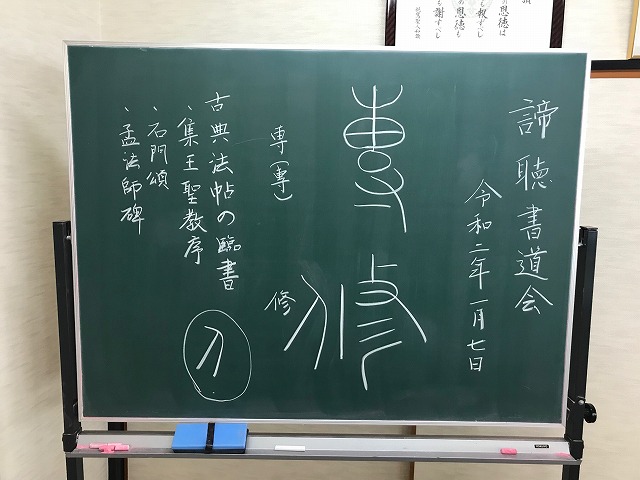 諦聴書道会
令和二年一月七日
専修
専(專)
修
古典法帖の臨書
、集王聖教序
、石門頌
、孟法師碑
恩徳は
報ずべし
の恩徳も
謝すべし